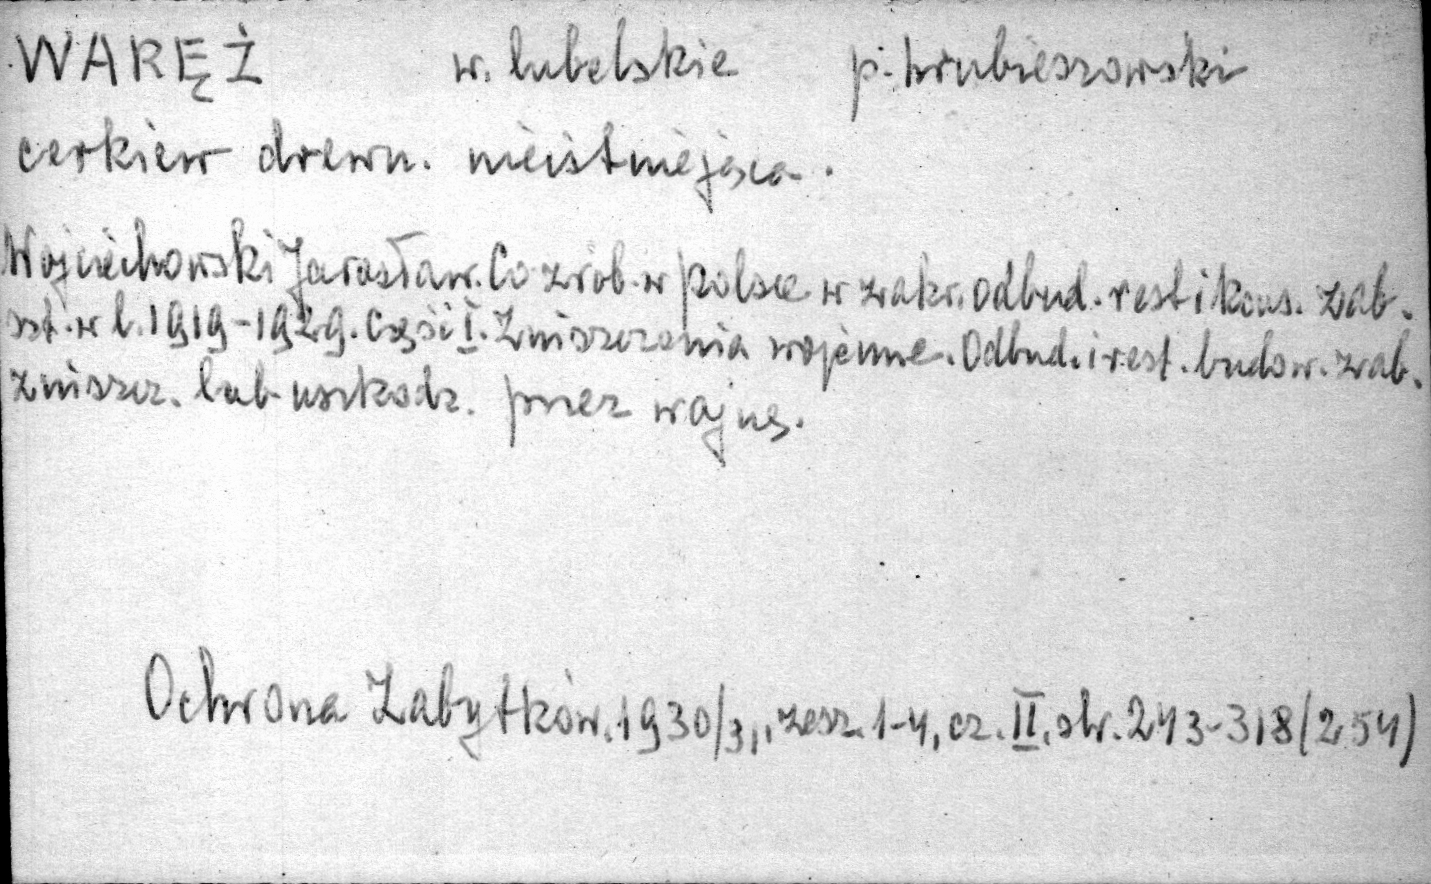 WARĘŻ w. lubelskie p. hrubieszowski
cerkiew drewn. nieistniejąca.
Wojciechowski Jarosław. Co zrob. w Polsce w zakr. odbud. rest i kons. zab.
szt. w l. 1919-1929. Część I. Zniszczenia wojenne. Odbud. i rest. budow. zab.
zniszcz. lub uszkodz. przez wojnę.
Ochrona Zabytków. 1930/31, zesz. 1-4, cz. II. str. 243-318 (254)